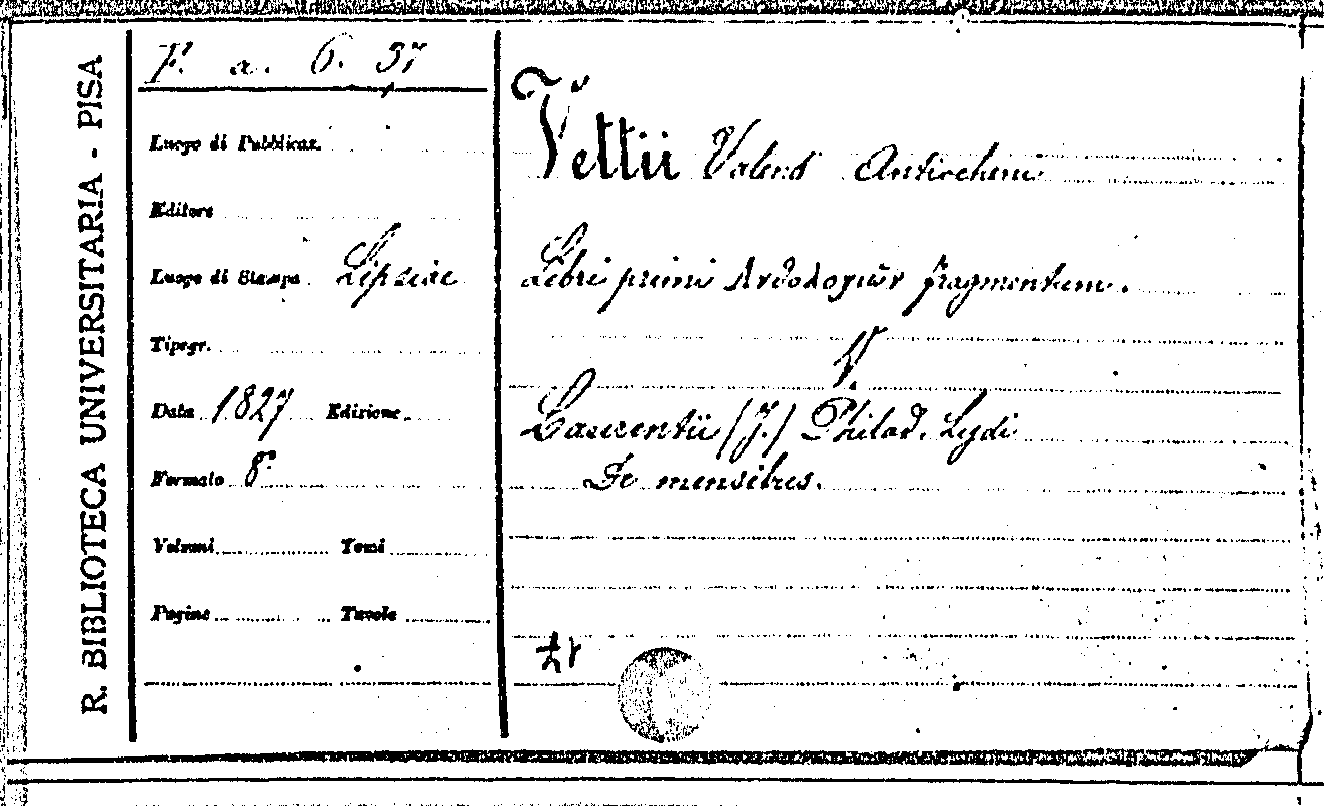 R. BIBLIOTECA UNIVERSITARIA - PISA
F. a. 6. 37
Luogo di Pubblicaz.
Editore
Luogo di Stampa Lipsiae
Tipogr.
Data 1827 Edizione
Formato 8°
Volumi Tomi
Pagine Tavole
Vettii Valent Antiocheni
Libri primi Ἀνθολογιῶν fragmentum.
V.
Laurentii (J.) Philad. Lydi
De mensibus.